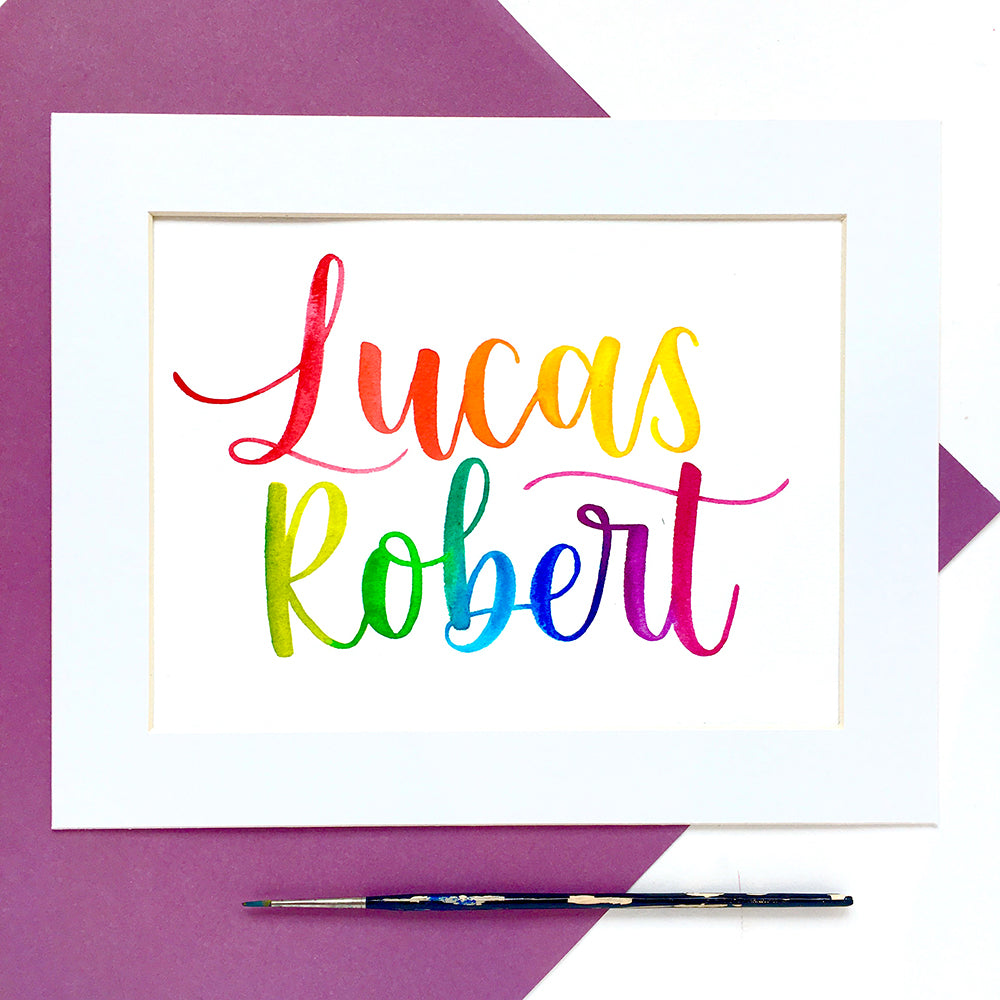 Lucas
Robert